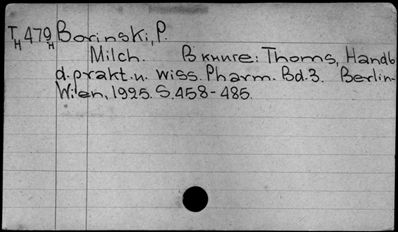 T_H 479_H Borinski, P.
Milch. В книге: Thoms, Handb
d. prakt. u. wiss. Pharm. Bd. 3. Berlin-
Wien, 1925. S. 458-485.